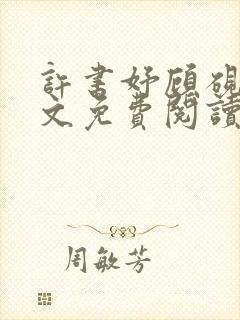 許書妤顧硯
文免費閱讀
周敏芳